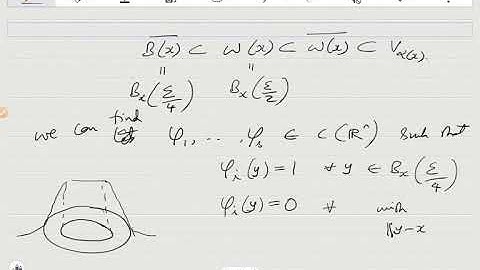 $\overline{B(x)} \subset W(x) \subset \overline{W(x)} \subset V_{\alpha(x)}$
|| ||
$B_x\left(\frac{\varepsilon}{4}\right)$ $B_x\left(\frac{\varepsilon}{2}\right)$
we can find $\varphi_1, \ldots, \varphi_s \in C(\mathbb{R}^n)$ such that
$\varphi_i(y) = 1 \ \forall \ y \in B_x\left(\frac{\varepsilon}{4}\right)$
$\varphi_i(y) = 0 \ \forall$ with
$\|y - x$